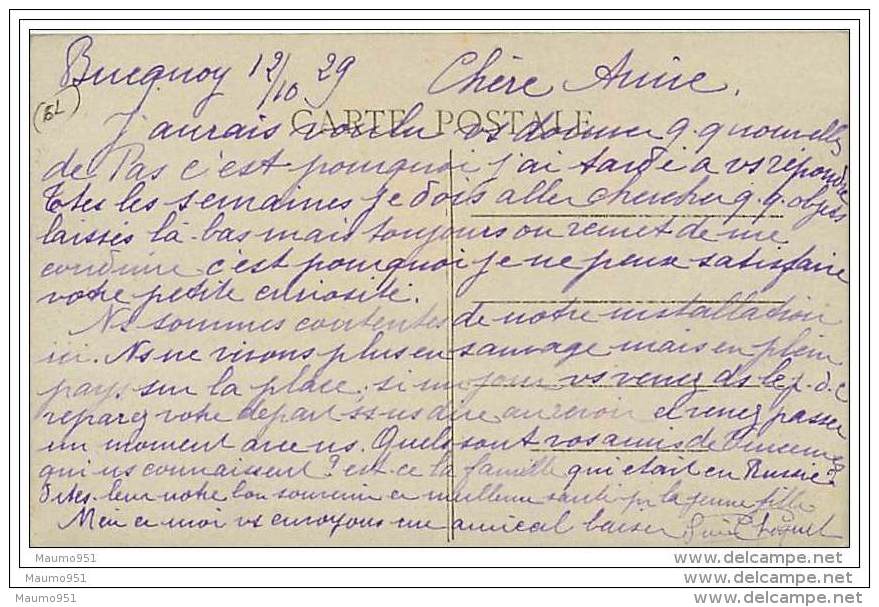 Bucquoy 12/10 29 Chère Amie,
(62)
CARTE POSTALE
J'aurais voulu vs donner q.q nouvelles
de Pas c'est pourquoi j'ai tardé à vs répondre
Ttes les semaines je dois aller chercher q.q. objets
laissés là-bas mais toujours on remet de me
conduire c'est pourquoi je ne peux satisfaire
votre petite curiosité.
Ns sommes contentes de notre installation
ici. Ns ne vivons plus en sauvage mais en plein
pays sur la place, si un jour vs venez ds le p. d. c
reparez votre départ ss ns dire au revoir et venez passer
un moment avec ns. Quels sont vos amis de Vincennes
qui ns connaissent? est-ce la famille qui était en Russie?
Dites-leur notre bon souvenir et meilleure santé pr la jeune fille
Men et moi vs envoyons un amical baiser
Maumo951
Maumo951
Maumo951
www.delcampe.net
www.delcampe.net
www.delcampe.net